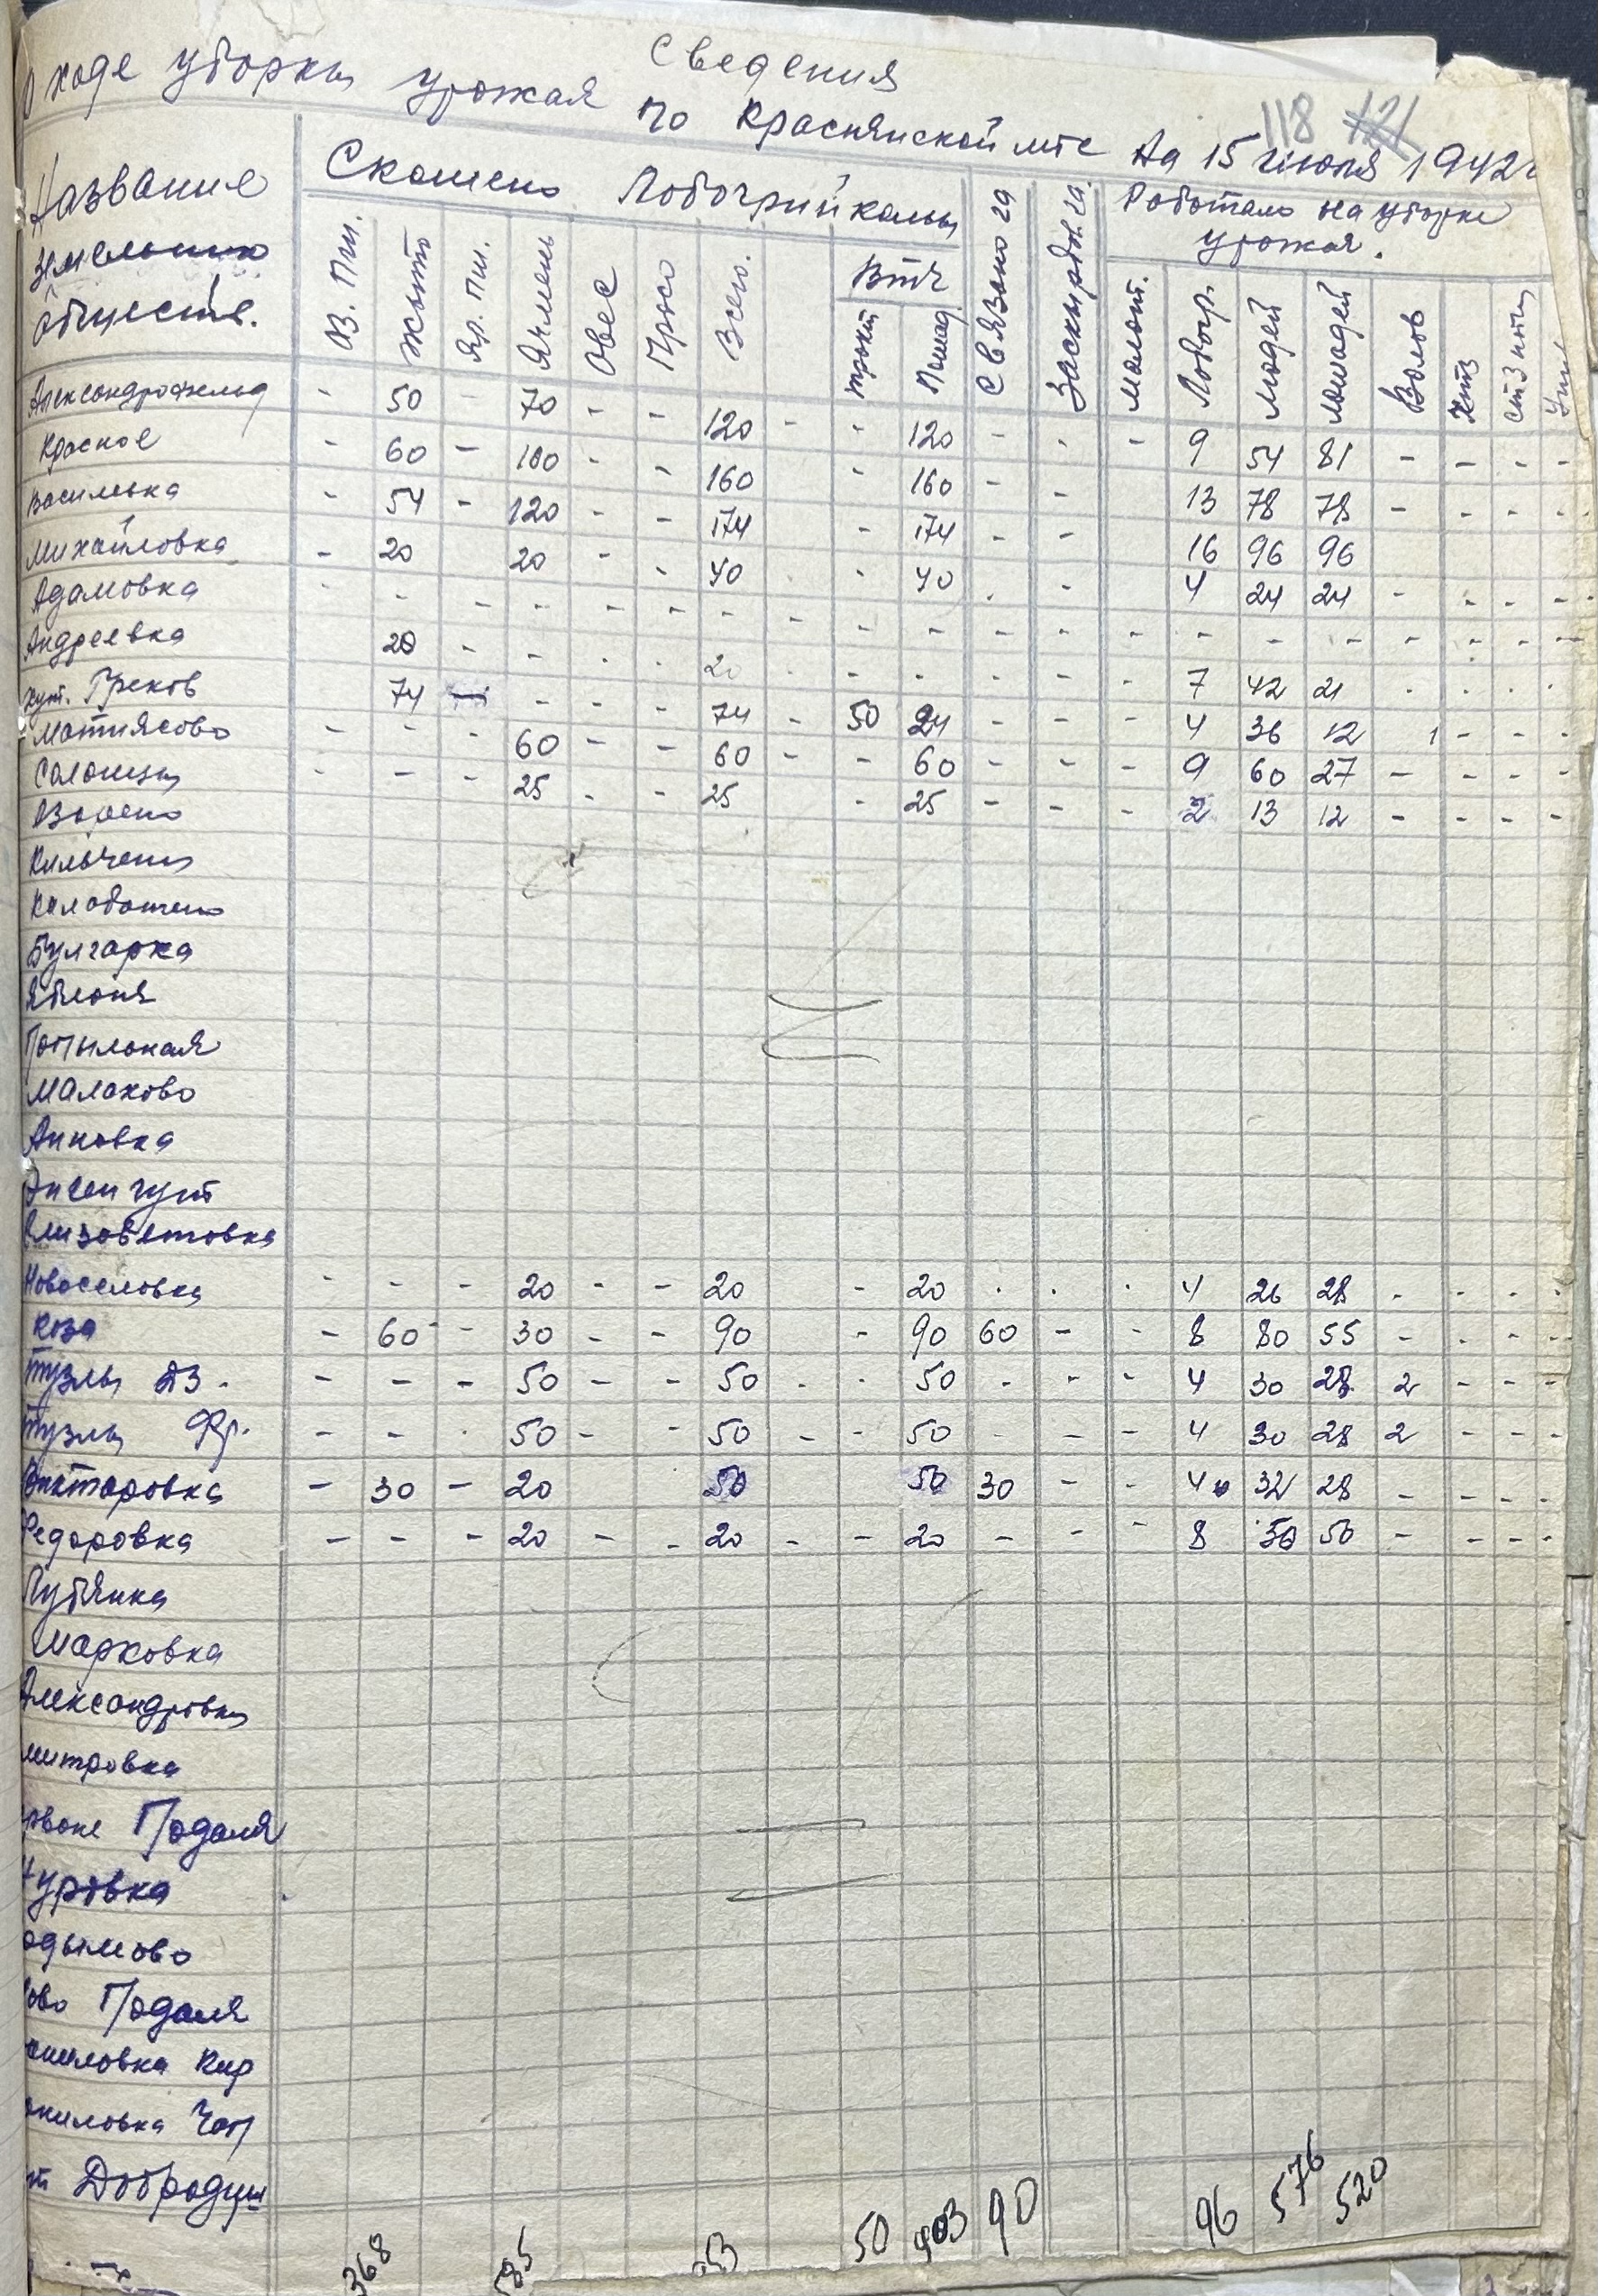 Сведения
О ходе уборки урожая по Краснянской мтс На 15 июля 1942г
118 121
Название земельного обществ.
Скошено Лобогрийками
Оз. Пш. Жыто Яр. Пш. Ячмень Овес Просо Всего.
Втч
тракт Лошад
Связано га
Заскирдов. га.
Работало на уборке урожая.
малот. Лобогр. людей лошадей Волов Хтз стз нати
Александрофельд - 50 - 70 - - 120 - - 120 - - - 9 54 81 - - - -
Красное - 60 - 100 - - 160 - 160 - - 13 78 78 - - - -
Василевка - 54 - 120 - - 174 - 174 - - 16 96 96
Михайловка - 20 20 - - 40 - 40 . - 4 24 24 - - - -
Адамовка - - - - - - - - - - - - - - - - - - - -
Андреевка 20 - - . . 20 . - - - - - 7 42 21 . . . .
хут. Греков 74 - - - - 74 - 50 24 - - - 4 36 12 1 - - -
Матиясово - - - 60 - - 60 - - 60 - - - 9 60 27 - - - -
Солонцы - - - 25 - - 25 - 25 - - - 2 13 12 - - - -
Кильчень
Калабатено
Булгарка
Яблоня
Попильная
Малахово
Анновка
Энген гушт
Елизаветовка
Новоселовка - - - 20 - - 20 - 20 . . . 4 26 28 - - - -
Коза - 60 - 30 - - 90 - 90 60 - - 8 80 55 - - - -
Тузлы ДЗ. - - - 50 - - 50 - - 50 - - - 4 30 28 2 - - -
Тузлы Фр. - - . 50 - - 50 - - 50 - - - 4 30 28 2 - - -
Викторовка - 30 - 20 50 50 30 - - 4 32 28 - - - -
Федоровка - - - 20 - - 20 - - 20 - - - 8 50 50 - - - -
Лубянка
Марковка
Александровка
митровка
рвоне Подоля
уровка
адымово
ово Подоля
ниловка Кир
ниловка Чап
Добродуш
368 585 53 50 903 90 96 576 520